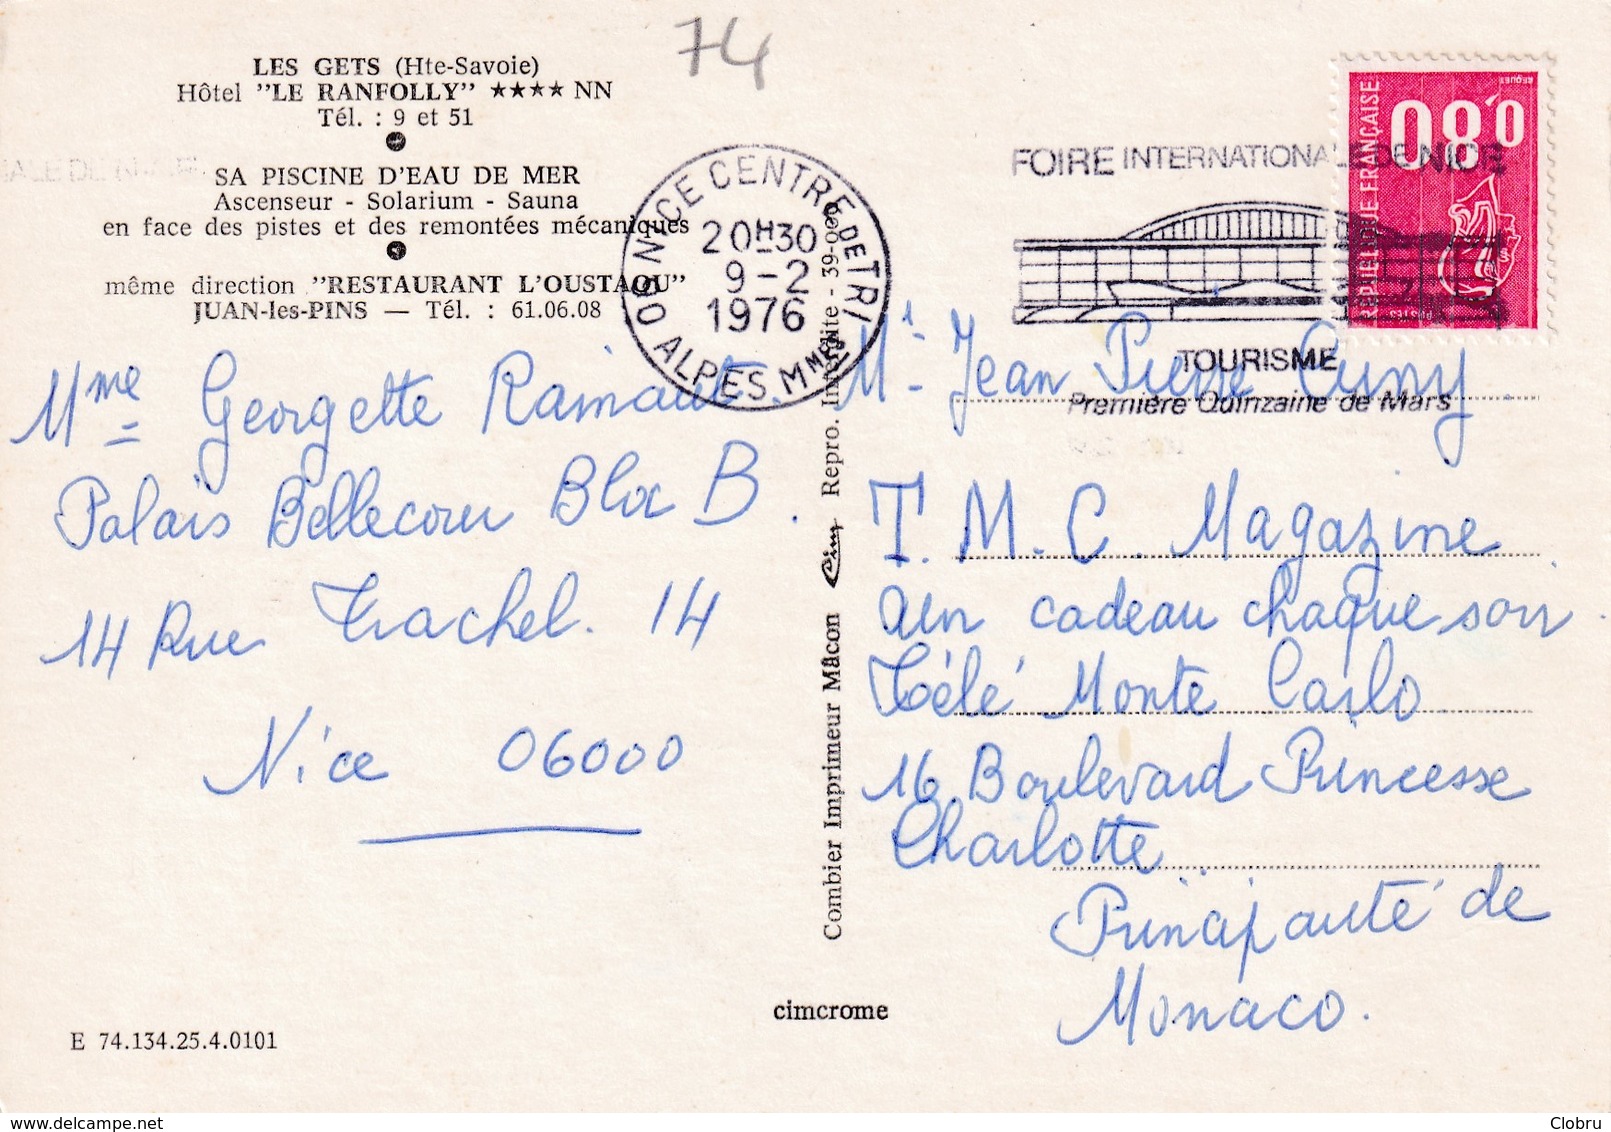 74
LES GETS (Hte-Savoie)
Hôtel "LE RANFOLLY" ★★★★ NN
Tél. : 9 et 51
SA PISCINE D'EAU DE MER
Ascenseur - Solarium - Sauna
en face des pistes et des remontées mécaniques
même direction "RESTAURANT L'OUSTAOU"
JUAN-les-PINS — Tél. : 61.06.08
Mme Georgette Rainaut.
Palais Bellecour Bloc B.
14 Rue Trachel. 14
Nice 06000
E 74.134.25.4.0101
06 NICE CENTRE DE TRI
20H30
9-2
1976
ALPES MMES
Combier Imprimeur Mâcon Cim Repro. Interdite - 39-000
cimcrome
FOIRE INTERNATIONALE DE NICE
TOURISME
Première Quinzaine de Mars
0,80
REPUBLIQUE FRANÇAISE
BEQUET
Mr Jean Pierre Cuny
T.M.C. Magazine
Un cadeau chaque soir.
Télé Monte Carlo.
16 Boulevard Princesse
Charlotte
Principauté de
Monaco.
Clobru